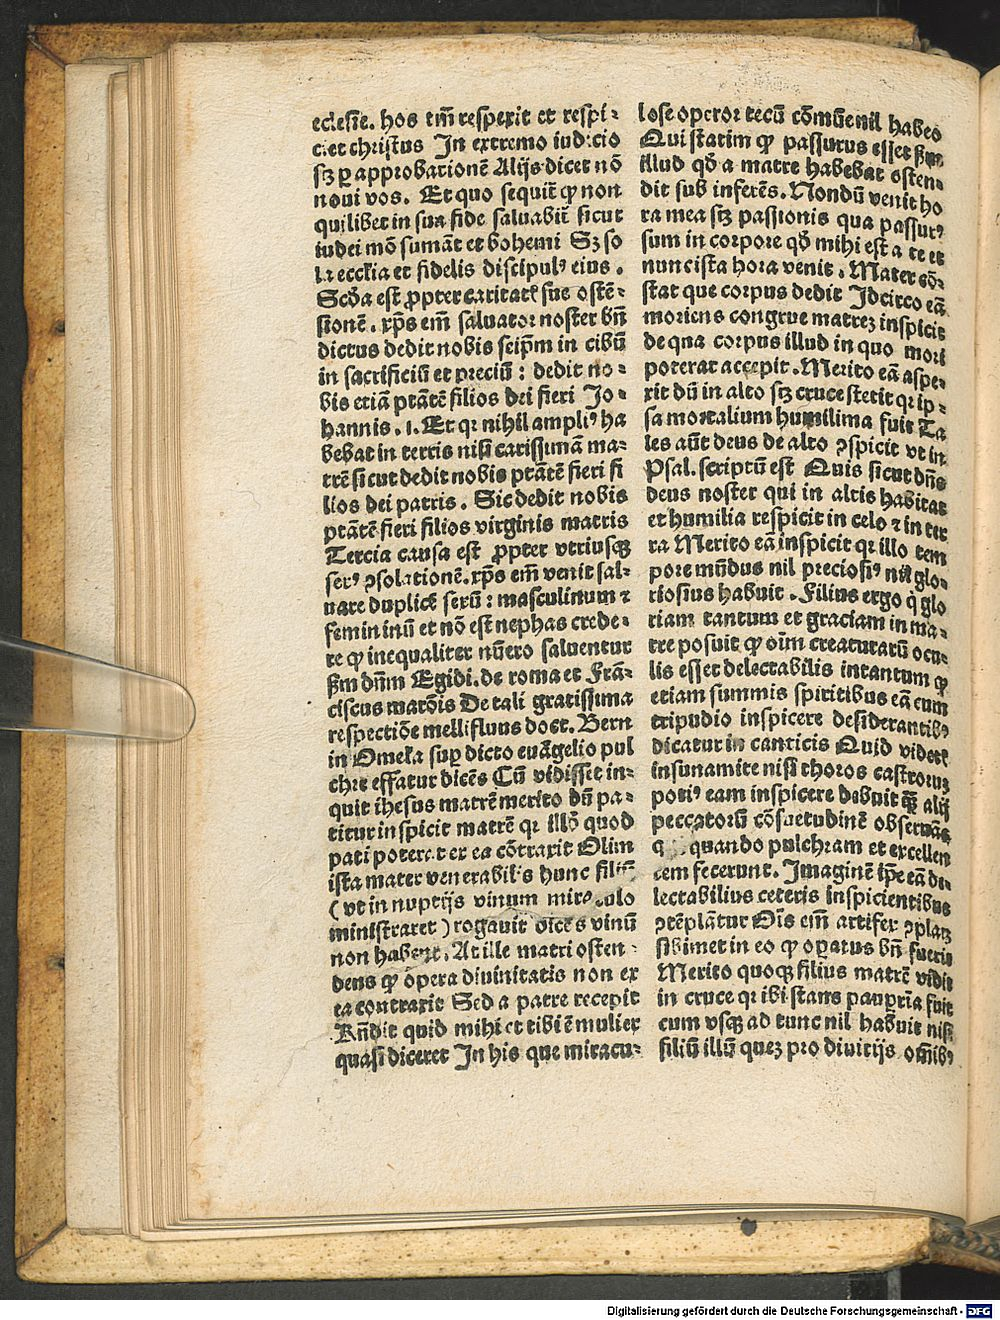 eclesie. hos em̄ respexit et respi-
ciet christus In extremo iudicio
sꝫ ꝑ approbationē Alijs dicet nō
noui vos. Et quo sequit̄ ꝙ non
quilibet in sua fide saluabit̄ sicut
iudei mō sumāt et bohemi Sꝫ so
la ecclīa et fidelis discipulꝰ eius.
Scḋa est ꝓpter caritatē sue ostē-
sionē. xp̄s em̄ saluator noster bn̄
dictus dedit nobis seip̄m in cibū
in sacrificiū et preciū: dedit no-
bis etiā ptātē filios dei fieri Jo-
hannis. 1. Et qꝛ nihil ampliꝰ ha
bebat in terris nisi carissimā ma-
trē sicut dedit nobis ptātē fieri fi
lios dei patris. Sic dedit nobis
ptātē fieri filios virginis matris
Tercia causa est ꝓpter vtriusqꝫ
serꝰ ꝯsolationē. xp̄s em̄ venit sal-
uare duplicē sexū: masculinum ⁊
femininū et nō est nephas crede-
re ꝙ inequaliter nūero saluentur
ẜm dn̄m Egidi. de roma et Frā-
ciscus marōis De tali gratissima
respectiōe mellifluus doct. Bern
in Omelīa suꝑ dicto euāgelio pul
chre effatur dicēs Cū vidisset in-
quit ihesus matrē merito dū pa-
titur inspicit matrē qꝛ illō quod
pati poterat ex ea cōtraxit Olim
ista mater venerabilis hunc filiū
(vt in nuptijs vinum miraculo
ministraret) rogauit dicēs vinū
non habent. At ille matri osten-
dens ꝙ opera diuinitatis non ex
ea contraxit Sed a patre recepit
Rn̄dit quid mihi et tibi ē mulier
quasi diceret In his que miracu-
lose operor tecū cōmūe nil habeo
Qui statim ꝙ passurus esset ẜm
illud qḋ a matre habebat osten-
dit sub inferēs. Nondū venit ho
ra mea sꝫ passionis qua passurꝰ
sum in corpore qḋ mihi est a te et
nunc ista hora venit. Mater cō-
stat que corpus dedit Idcirco eā
moriens congrue matreꝫ inspicit
de qua corpus illud in quo mori
poterat accepit. Merito eā aspe-
xit dū in alto sꝫ cruce stetit qꝛ ip-
sa mortalium humilima fuit Ta
les aūt deus de alto ꝯspicit vt in
Psal. scriptū est Quis sicut dn̄s
deus noster qui in altis habitat
et humilia respicit in celo ⁊ in ter
ra Merito eā inspicit qꝛ illo tem
pore mūdus nil preciosiꝰ nil glo-
riosius habuit. Filius ergo q̇ glo
riam tantum et graciam in ma-
tre posuit ꝙ oīm creaturarū ocu-
lis esset delectabilis intantum ꝙ
etiam summis spiritibus eā cum
tripudio inspicere desiderantibꝰ
dicatur in canticis Quid videtē
in sunamite nisi choros castroruꝫ
potiꝰ eam inspicere debuit qꝫ alij
peccatorū cōsuetudinē obseruās
quando pulchram et excellen
tem fecerunt. Imaginē ip̄e eā de-
lectabilius ceteris inspicientibus
ꝯtēplātur Oīs em̄ artifex ꝯplaꝫ
sibimet in eo ꝙ oꝑatus bn̄ fuerit
Merito quoqꝫ filius matrē vidit
in cruce qꝛ ibi stans pauꝑrīa fuit
cum vsqꝫ ad tunc nil habuit nisi
filiū illū queꝫ pro diuitijs om̄ibꝰ
Digitalisierung gefördert durch die Deutsche Forschungsgemeinschaft - DFG